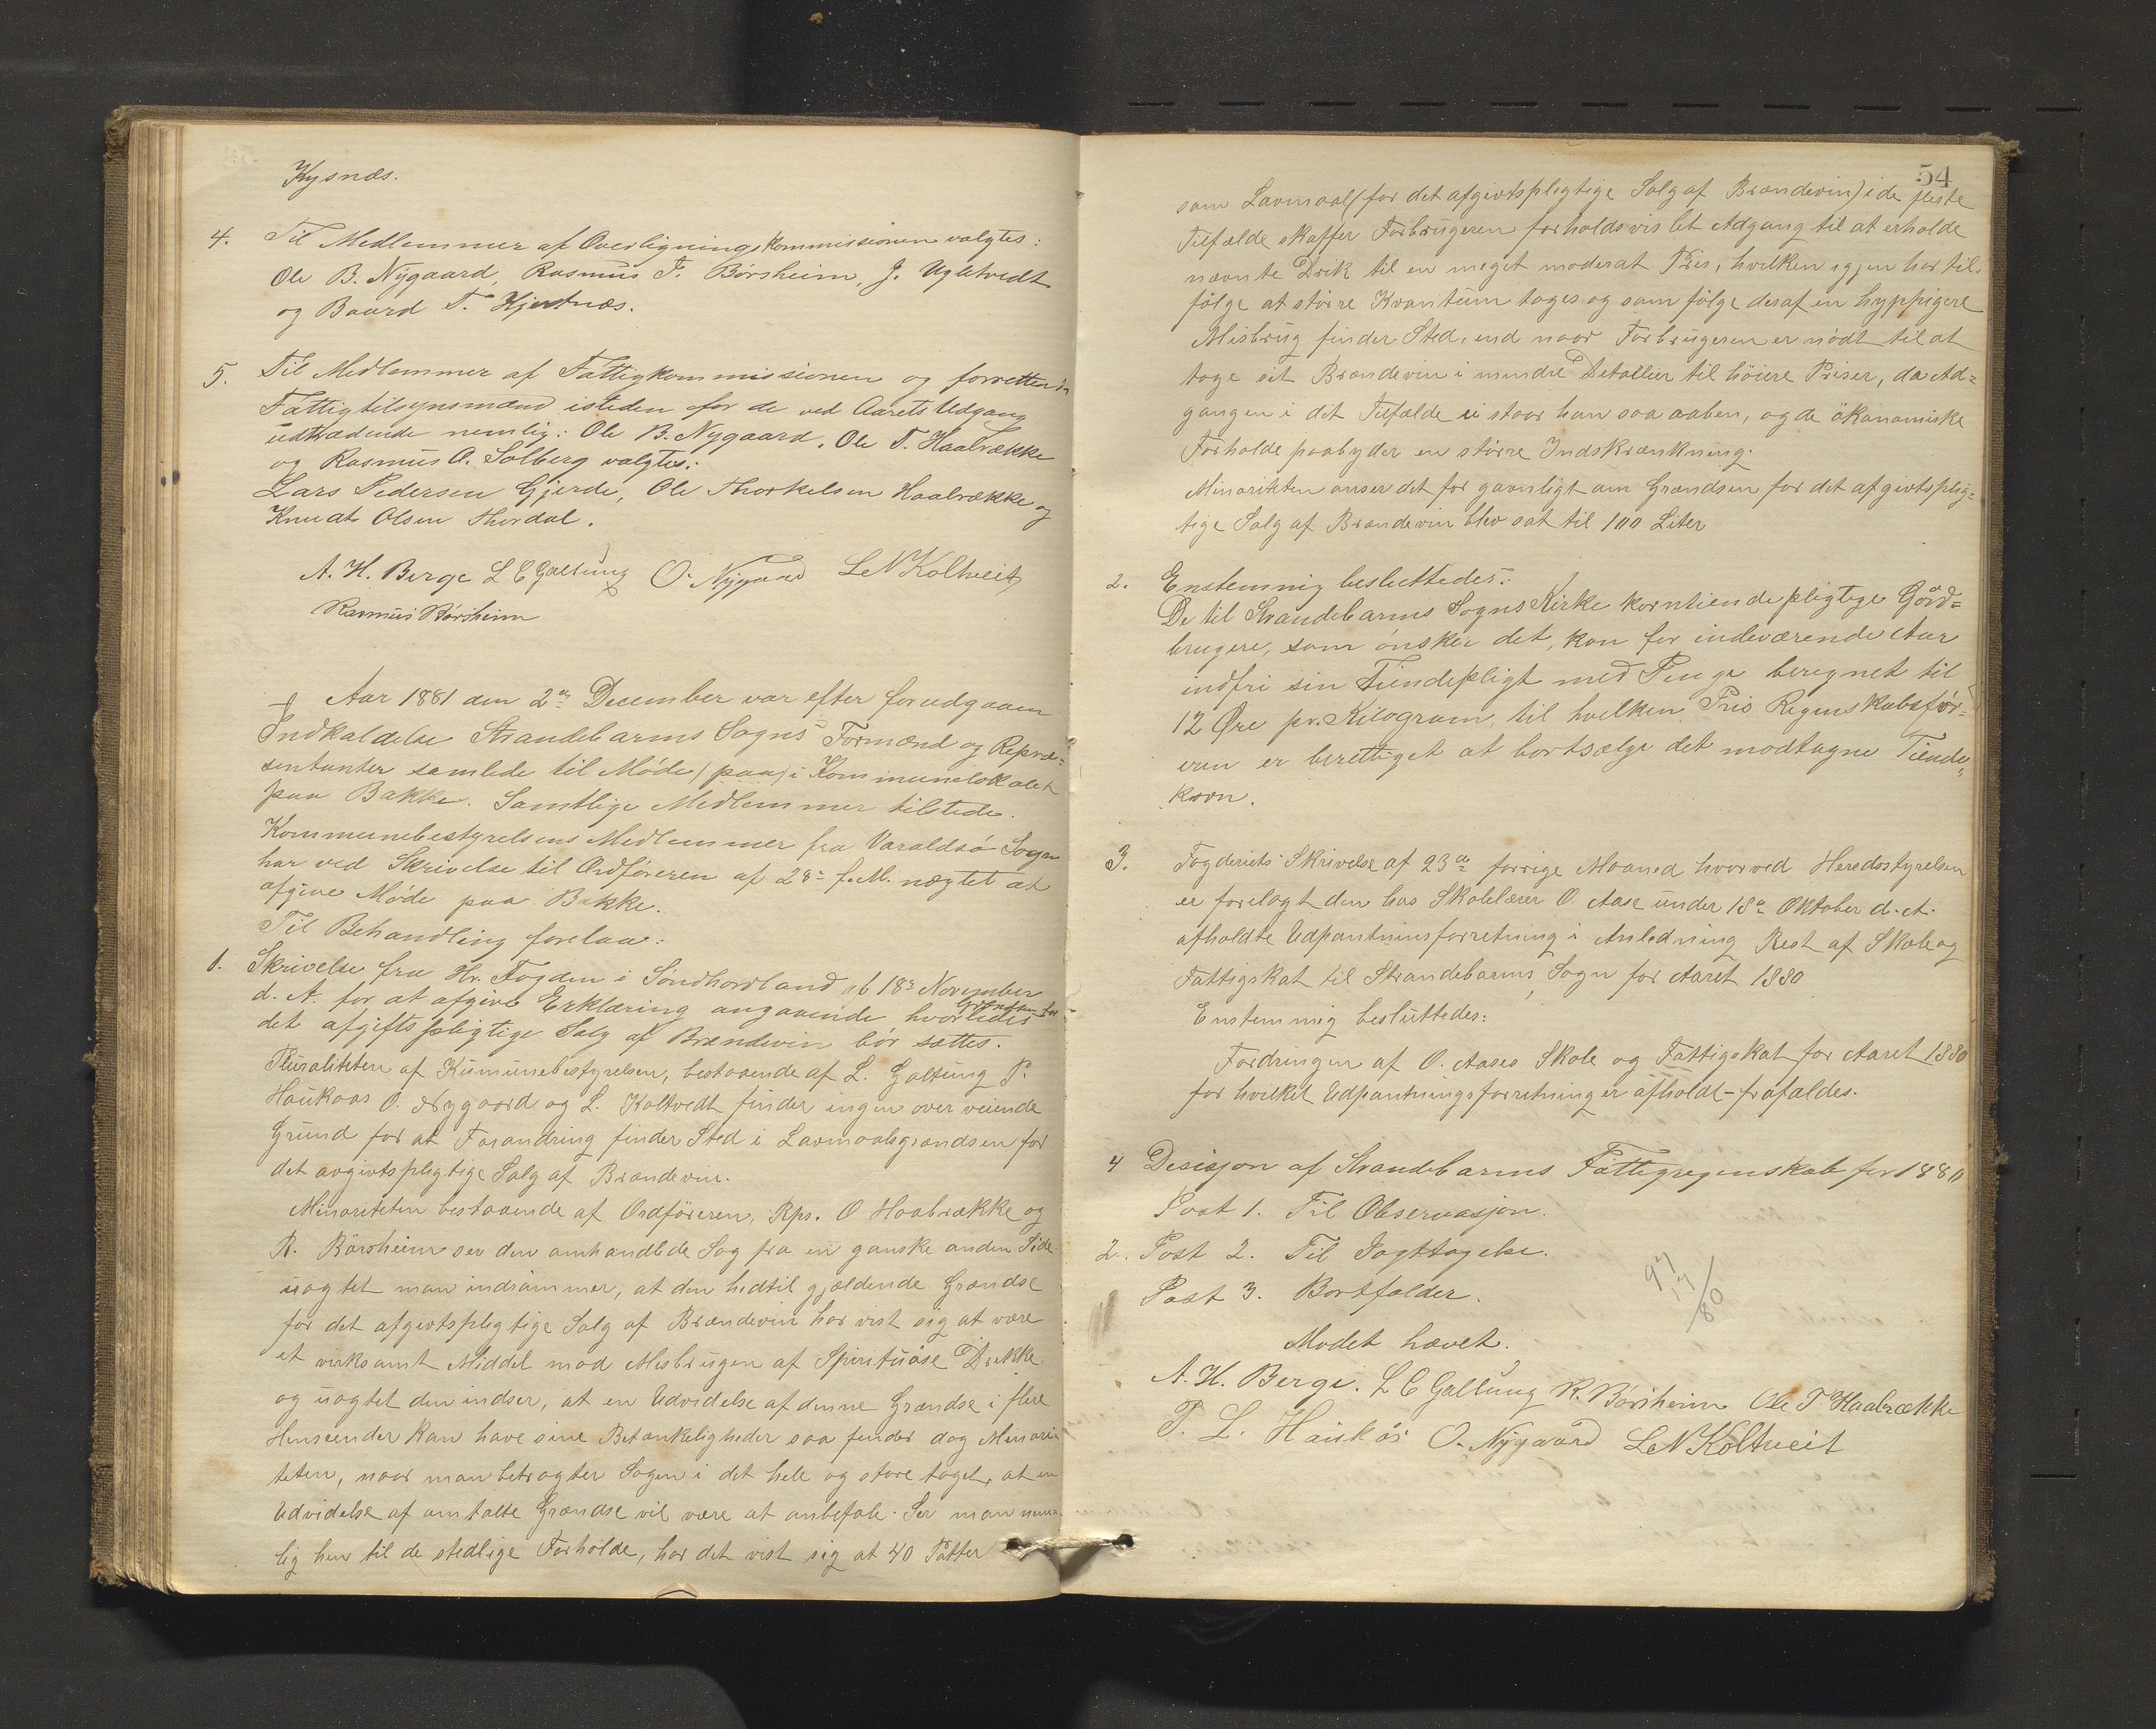 Kysnæs.
4. Til Medlemmer af Overligningskommissionen valgtes:
Ole B. Nygaard, Rasmus T. Børsheim, J. Ugletvedt
og Baard T. Hjertnæs.
5. Til Medlemmer af Fattigkommissionen og forrettende
Fattigtilsynsmænd isteden for de ved Aarets Udgang
udtrædende nemlig: Ole B. Nygaard, Ole T. Haalrække
og Rasmus A. Solberg valgtes:
Lars Pedersen Gjerde, Ole Thorkelsen Haalrække og
Knudt Olsen Thordal.
A. H. Berge L C Galtung O. Nygaard L N Koltveit
Rasmus Børsheim
Aar 1881 den 2den December var efter forudgaaen
Indkaldelse Strandebarms Sogns Formænd og Repræ=
sentanter samlede til Møde (paa) i Kommunelokalet
paa Bakke. Samtlige Medlemmer tilstede.
Kommunebestyrelsens Medlemmer fra Varaldsø Sogn
har ved Skrivelse til Ordføreren af 28de f. M. nægtet at
afgive Møde paa Bakke.
Til Behandling forelaa:
1. Skrivelse fra Hr. Fogden i Søndhordland af 18de November
d. A. for at afgive Erklæring angaaende hvorledes Grændsen for
det afgiftspligtige Salg af Brændevin bör sættes.
Pluraliteten af Kumunebestyrelsen, bestaaende af L. Galtung P.
Haukaas O. Nygaard og L. Koltvedt finder ingen over veiende
Grund for at Forandring finder Sted i Lavmaalsgrændsen for
det avgivtspligtige Salg af Brændevin.
Minoriteten bestaaende af Ordføreren, Rps. O Haalrække og
R. Börsheim ser den omhandlede Sag fra en ganske anden Side
uagtet man indrömmer, at den hidtil gjældende Grændse
for det afgivtspligtige Salg af Brændevin har vist sig at være
et virksomt Middel mod Misbrugen af Spirituöse Drikke
og uagtet den indser, at en Udvidelse af denne Grændse i flere
Henseender kan have sine Betænkeligheder saa finder dog Minori
teten, naar man betragter Sagen i det hele og store taget, at en
Udvidelse af omtalte Grændse vil være at anbefale. Ser man nem
lig hen til de stedlige Forholde, har det vist sig at 40 Potter
54
som Lavmaal (for det afgivtspligtige Salg af Brændevin) i de fleste
Tilfælde skaffer Forbrugeren forholdsvis let Adgang til at erholde
nævnte Drik til en meget moderat Pris, hvilken igjen har til
fölge at större Kvantum tages og som fölge deraf en hyppigere
Misbrug finder Sted, end naar Forbrugeren er nödt til at
tage sit Brændevin i mindre Detallier til höiere Priser, da Ad=
gangen i det Tilfælde ei staar ham saa aaben, og de ökonomiske
Forholde paabyder en större Indskrænkning.
Minoriteten anser det for gavnligt om Grændsen for det afgivtsplig=
tige Salg af Brændevin blev sat til 100 Liter
2. Enstemmig besluttedes:
De til Strandebarms Sogns Kirke korntiendepligtige Gård=
brugere, som ønsker det, kan for indeværende Aar
indfri sin Tiendepligt med Penge beregnet til
12 Øre pr. Kilogram, til hvilken Pris Regnskabsfør=
eren er berettiget at bortsælge det modtagne Tiende
korn.
3. Fogderiets Skrivelse af 23de forrige Maaned hvorved Heredsstyrelsen
er forelagt den hos Skolelærer O. Aase under 18de Oktober d. A.
afholdte Udpantninsforretning i Anledning Rest af Skole og
Fattigskat til Strandebarms Sogn for Aaret 1880
Enstemmig besluttedes:
Fordringen af O. Aases Skole og Fattigskat for Aaret 1880
for hvilket Udpantningsforretning er afholdt - frafaldes.
4 Desisjon af Strandebarms Fattigregnskab for 1880
Post 1. Til Observasjon.
2. Post 2. Til Iagttagelse.
Post 3. Bortfalder.
97
17
80
Modet hævet.
A. H. Berge. L C Galtung R. Børsheim Ole T Haalrække
P. L. Haukås O. Nygaard L N Koltveit